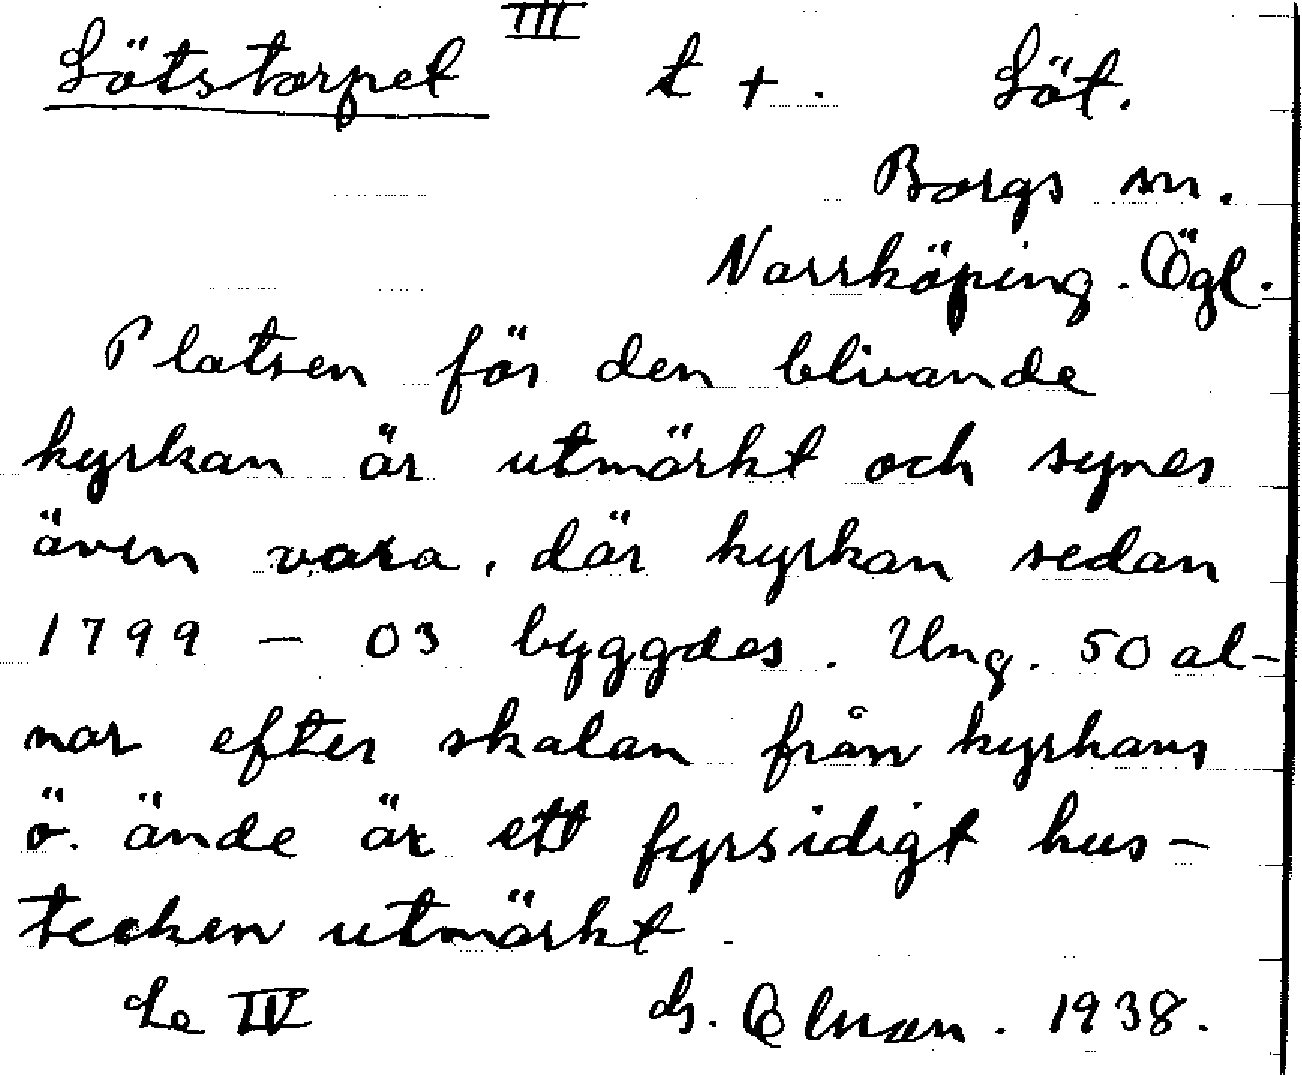 III
Lötstorpet t +. Löt.
Borgs sn.
Norrköping. Ögl.
Platsen för den blivande
kyrkan är utmärkt och synes
även vara, där kyrkan sedan
1799 - 03 byggdes. Ung. 50 al-
nar efter skalan från kyrkans
ö. ände är ett fyrsidigt hus-
tecken utmärkt.
Se IV G. Elman. 1938.